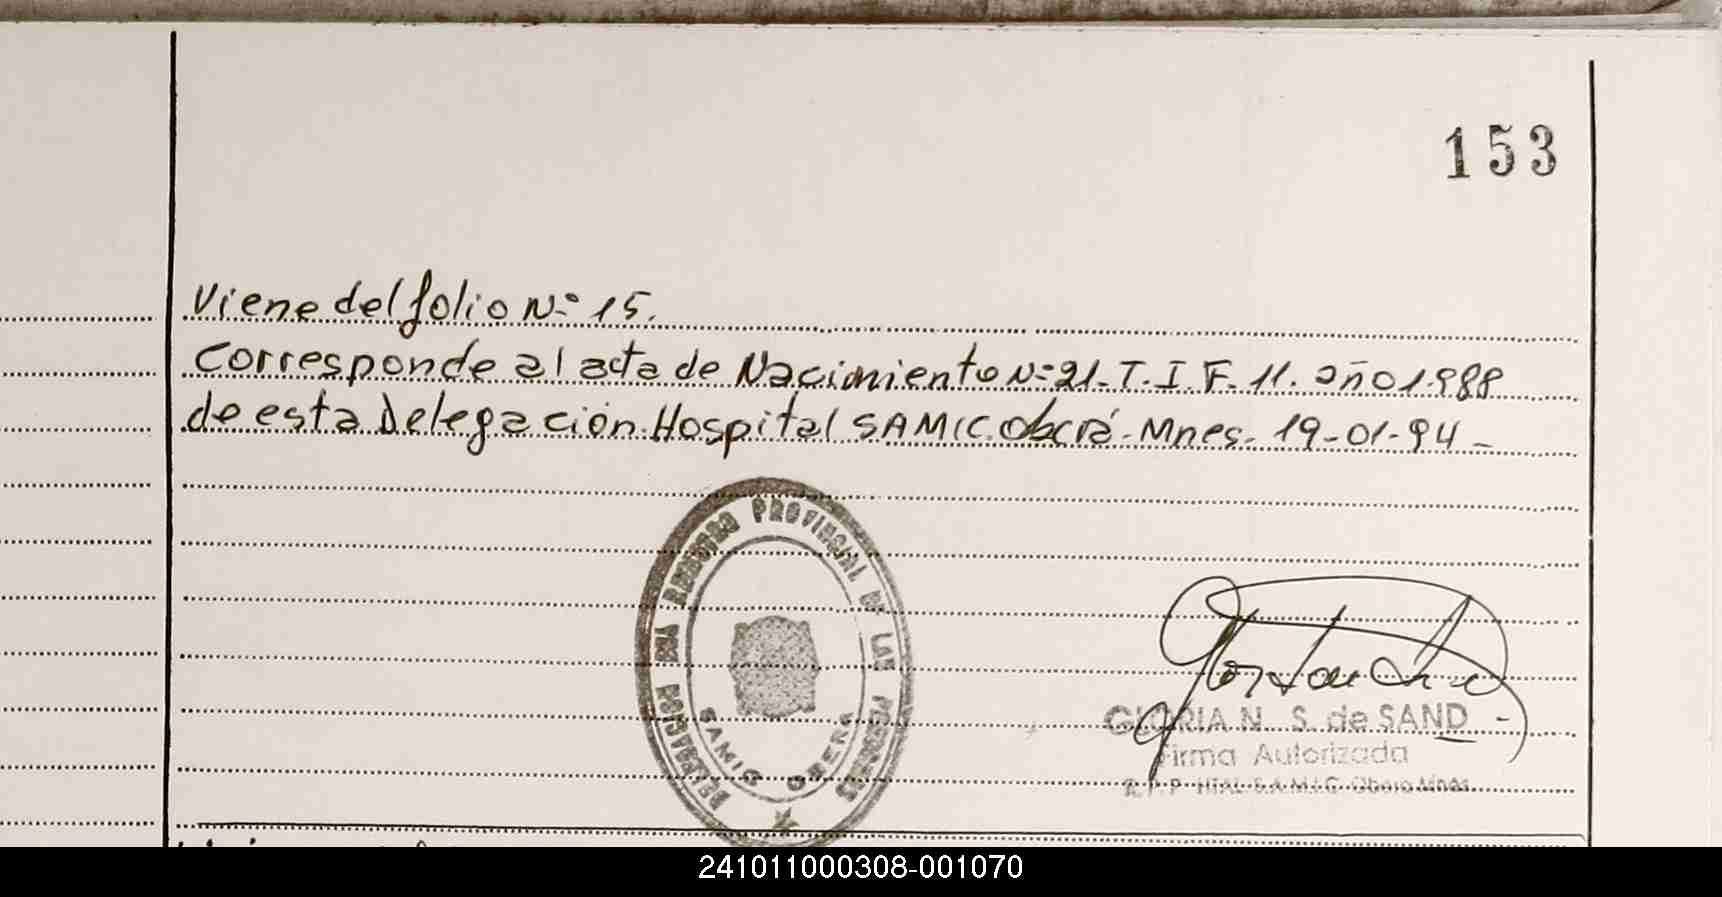 153
Viene del folio N=° 15.
Corresponde al acta de Nacimiento N=° 21. T. I. F. 11. año 1.988
de esta Delegación Hospital SAMIC. Oberá. Mnes. 19-01-94-
DELEGACION DEL REGISTRO PROVINCIAL DE LAS PERSONAS
SAMIC OBERA
GLORIA N. S. de SAND
Firma Autorizada
R. P. P HTAL S.A.M.I.C Obera Mnes
241011000308-001070